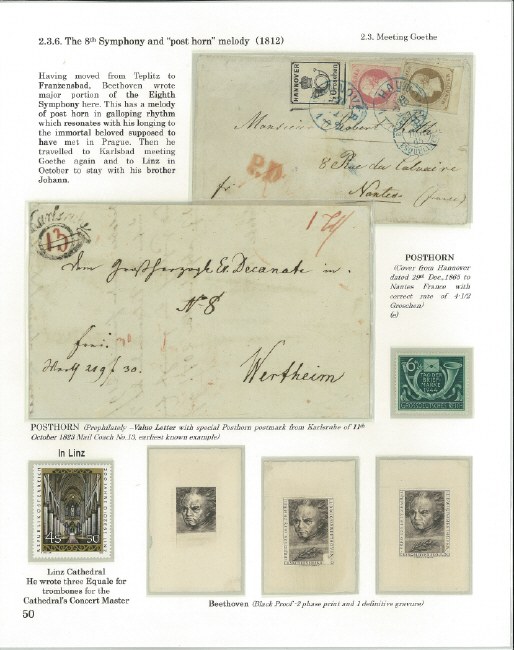 2.3.6. The 8th Symphony and "post horn" melody (1812)
2.3. Meeting Goethe
Having moved from Teplitz to
Franzensbad, Beethoven wrote
major portion of the Eighth
Symphony here. This has a melody
of post horn in galloping rhythm
which resonates with his longing to
the immortal beloved supposed to
have met in Prague. Then he
travelled to Karlsbad meeting
Goethe again and to Linz in
October to stay with his brother
Johann.
HANNOVER
Monsieur Robert
8 Rue du Calvaire
Nantes (france)
P.D.
POSTHORN
(Cover from Hannover
dated 29th Dec.,1865 to
Nantes France with
correct rate of 4-1/2
Groschen)
(e)
Karlsruhe
13
Dem Großherzogl. Decanate in
No 8
frei
Wertheim
6+24
TAG DER
BRIEF
MARKE
1944
GROSSDEUTSCHES REICH
POSTHORN (Prephilately –Value Letter with special Posthorn postmark from Karlsruhe of 11th
October 1823 Mail Coach No.13, earliest known example)
In Linz
REPUBLIK ÖSTERREICH
4S 50
Linz Cathedral
He wrote three Equale for
trombones for the
Cathedral's Concert Master
Beethoven (Black Proof -2 phase print and 1 definitive gravure)
50